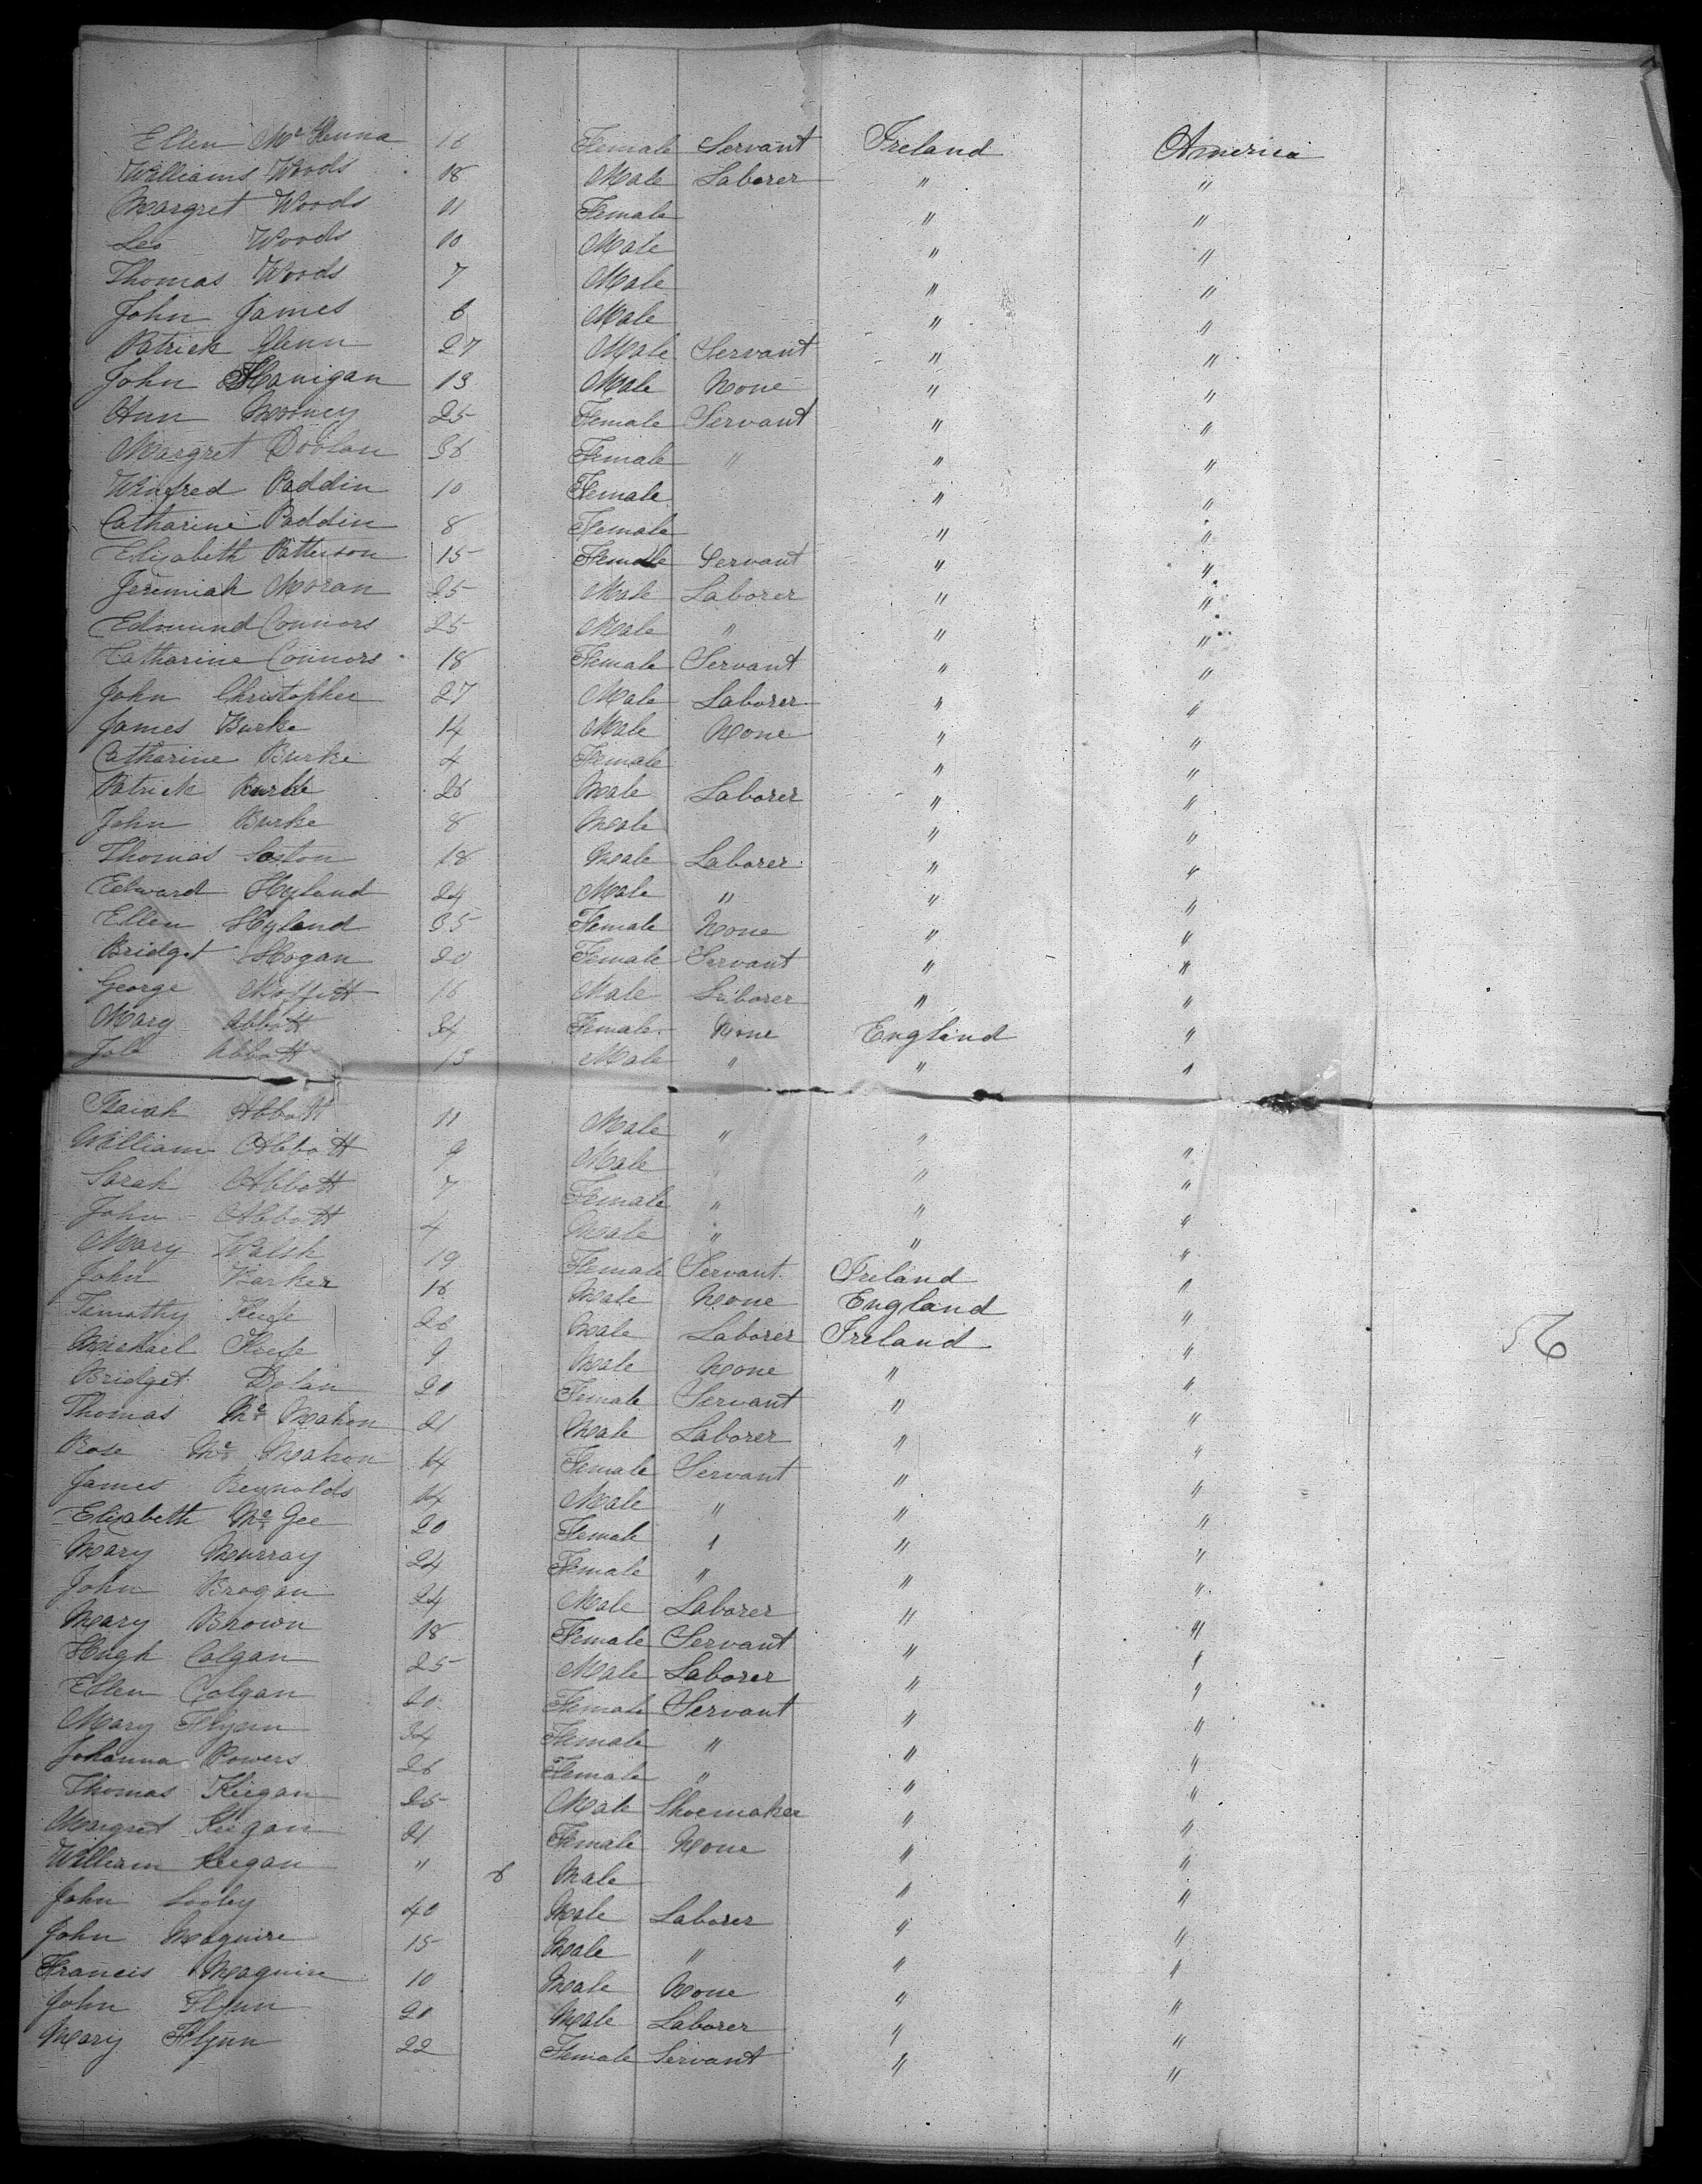 Ellen Mc Kenna 16 Female Servant Ireland America
Williams Woods 18 Male Laborer " "
Margret Woods 11 Female " "
Leo Woods 10 Male " "
Thomas Woods 7 Male " "
John James 6 Male " "
Patrick Glenn 27 Male Servant " "
John Hanigan 13 Male None " "
Ann Mooney 25 Female Servant " "
Margret Doolan 36 Female " " "
Winfred Paddin 10 Female " "
Catharine Paddin 8 Female " "
Elizabeth Patterson 15 Female Servant " "
Jeremiah Moran 25 Male Laborer " "
Edmund Connors 25 Male " " "
Catharine Connors 18 Female Servant " "
John Christopher 27 Male Laborer " "
James Burke 14 Male None " "
Catharine Burke 4 Female " "
Patrick Burke 26 Male Laborer " "
John Burke 8 Male " "
Thomas 18 Male Laborer " "
Edward Hyland 24 Male " " "
Ellen Hyland 35 Female None " "
Bridget Hogan 20 Female Servant " "
George Moffitt 16 Male Laborer " "
Mary Abbott 34 Female None England "
Job Abbott 13 Male " " "
Isaiah Abbott 11 Male " " "
William Abbott 9 Male " " "
Sarah Abbott 7 Female " " "
John Abbott 4 Male " " "
Mary Walsh 19 Female Servant Ireland "
John Barker 16 Male None England "
Timothy Keefe 26 Male Laborer Ireland "
Michael Keefe 9 Male None " "
Bridget Dolan 20 Female Servant " "
Thomas Mc Mahon 21 Male Laborer " "
Rose Mc Mahon 14 Female Servant " "
James Reynolds 14 Male " " "
Elizabeth Mc Gee 20 Female " " "
Mary Murray 24 Female " " "
John Brogan 24 Male Laborer " "
Mary Brown 18 Female Servant " "
Hugh Colgan 25 Male Laborer " "
Ellen Colgan 20 Female Servant " "
Mary Flynn 34 Female " " "
Johanna Powers 26 Female " " "
Thomas Keegan 25 Male Shoemaker " "
Margret Keegan 21 Female None " "
William Keegan " 6 Male " "
John Looby 40 Male Laborer " "
John Maguire 15 Male " " "
Francis Maguire 10 Male None " "
John Flynn 20 Male Laborer " "
Mary Flynn 22 Female Servant " "
56